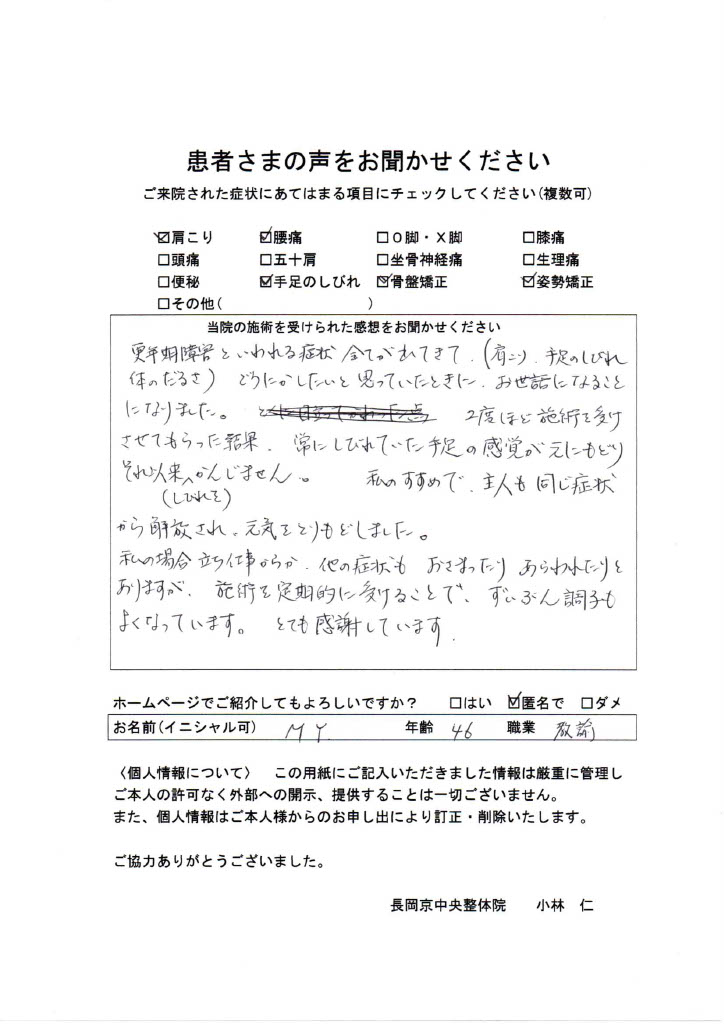 患者さまの声をお聞かせください
ご来院された症状にあてはまる項目にチェックしてください(複数可)
☑肩こり ☑腰痛 □O脚・X脚 □膝痛
□頭痛 □五十肩 □坐骨神経痛 □生理痛
□便秘 ☑手足のしびれ ☑骨盤矯正 ☑姿勢矯正
□その他( )
当院の施術を受けられた感想をお聞かせください
更年期障害といわれる症状 全てがおれてきて、(肩こり、手足のしびれ
体のだるさ) どうにかしたいと思っていたときに、お世話になること
になりました。 2度ほど施術を受け
させてもらった結果、常にしびれていた手足の感覚が元にもどり
それ以来、かんじません。 私のすすめで、主人も同じ症状
(しびれを)
から解放され、元気をとりもどしました。
私の場合立ち仕事からか、他の症状も おさまったり あらわれたりと
ありますが、施術を定期的に受けることで、ずいぶん調子も
よくなっています。 とても感謝しています。
ホームページでご紹介してもよろしいですか? □はい ☑匿名で □ダメ
お名前(イニシャル可) M Y. 年齢 46 職業 教諭
〈個人情報について〉 この用紙にご記入いただきました情報は厳重に管理し
ご本人の許可なく外部への開示、提供することは一切ございません。
また、個人情報はご本人様からのお申し出により訂正・削除いたします。
ご協力ありがとうございました。
長岡京中央整体院 小林 仁